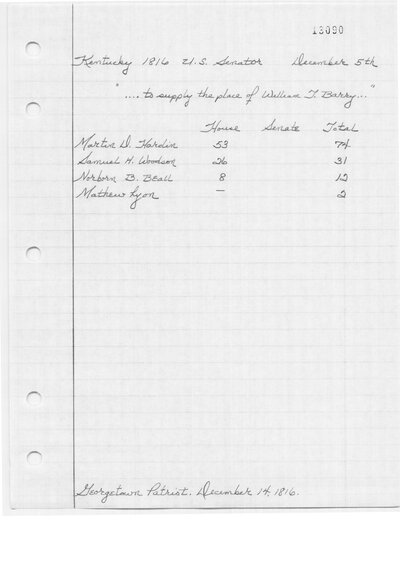 13090
Kentucky 1816 U.S. Senator December 5th
".... to supply the place of William T. Barry..."
House Senate Total
Martin D. Hardin 53 74
Samuel H. Woodson 26 31
Norborn B. Beall 8 12
Mathew Lyon — 2
Georgetown Patriot. December 14, 1816.